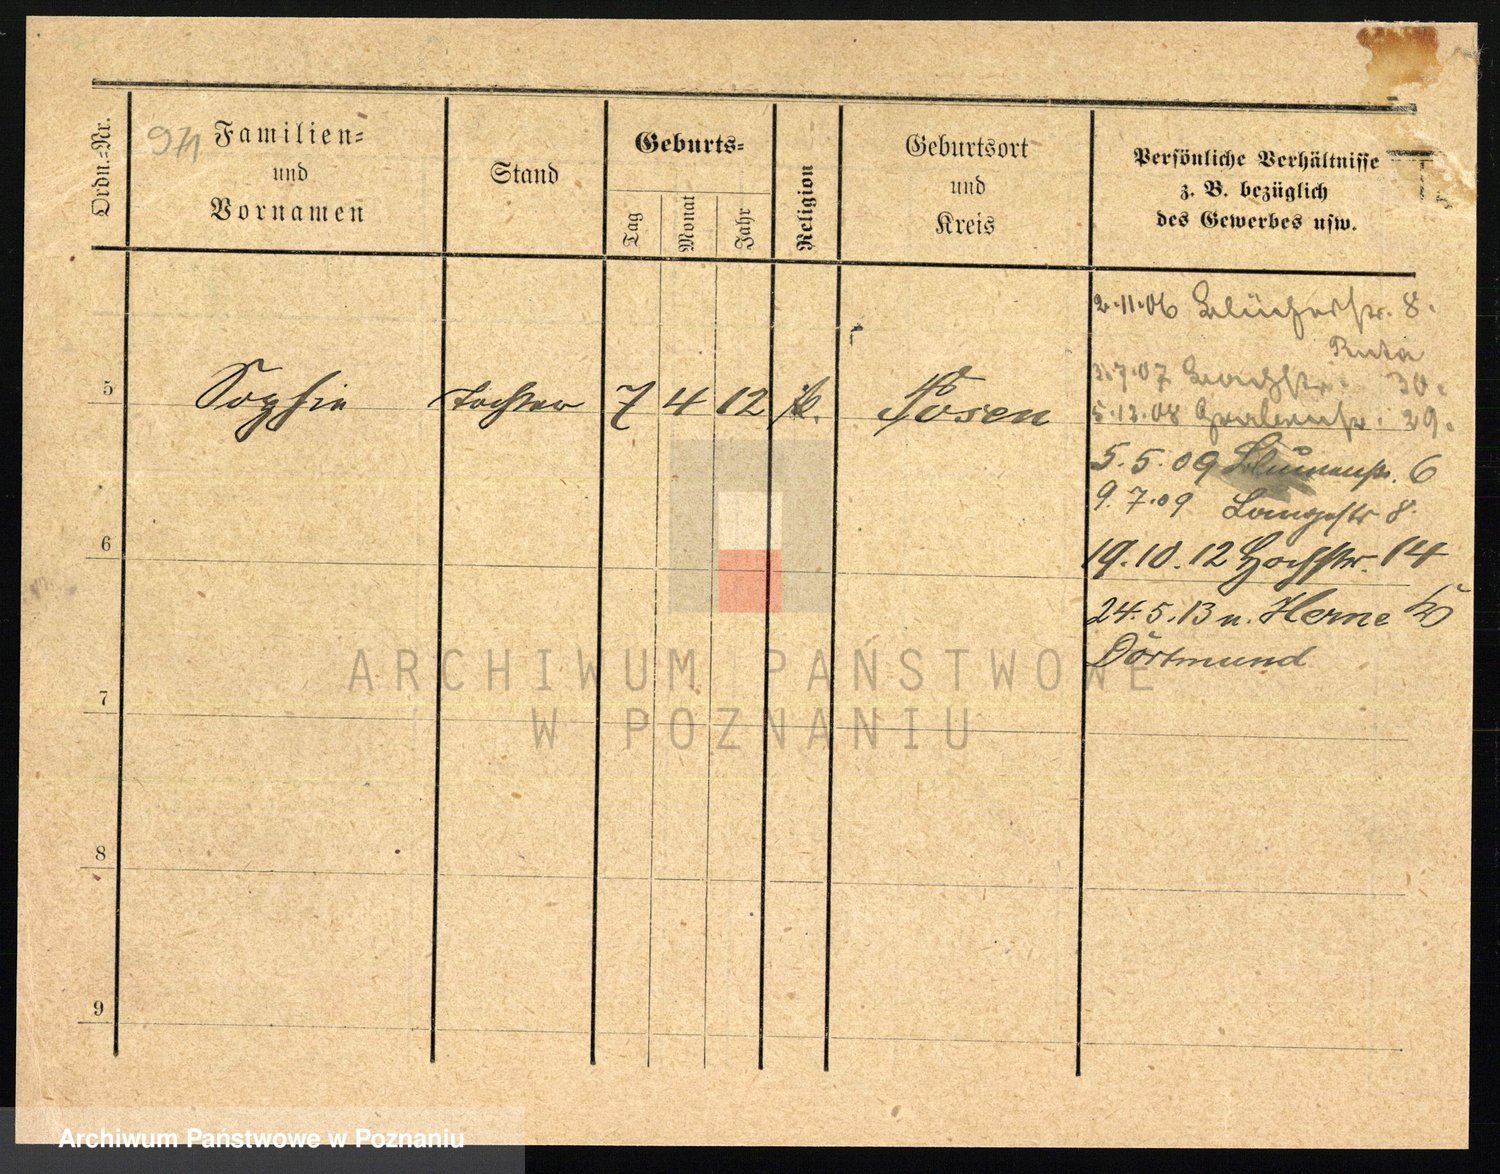 Ordn.=Nr.
971
Familien=
und
Vornamen
Stand
Geburts=
Tag
Monat
Jahr
Religion
Geburtsort
und
Kreis
Persönliche Verhältnisse
z. B. bezüglich
des Gewerbes usw.
2.11.06 Blücherstr. 8.
Ruta
2.7.07 Bachstr. 30.
5 Sophie Tochter 7 4 12 k. Posen
5.12.08 Grabenstr. 29.
5.5.09 Blumenstr. 6
9.7.09 Langestr 8.
6
19.10.12 Hochstr. 14
24.5.13 n. Herne
Dortmund
7
8
9
ARCHIWUM PAŃSTWOWE
W POZNANIU
Archiwum Państwowe w Poznaniu